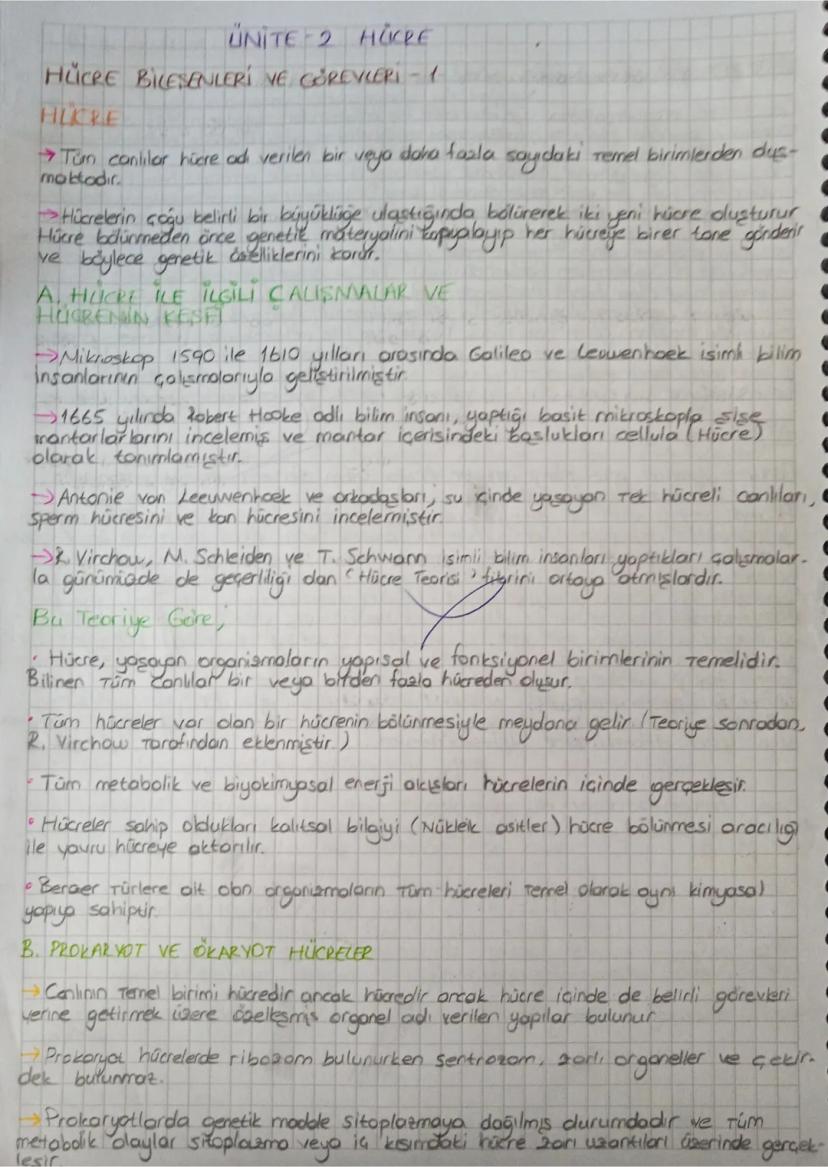 ÜNİTE-2 HÜCRE
HÜCRE BİLEŞENLERİ VE GÖREVLERİ-1
HÜCRE
→ Tüm canlılar hücre adı verilen bir veya daha fazla sayıdaki temel birimlerden oluş-
maktadır.
→ Hücrelerin çoğu belirli bir büyüklüğe ulaştığında bölünerek iki yeni hücre oluşturur
Hücre bölünmeden önce genetik materyalini kopyalayıp her hücreye birer tane gönderir
ve böylece genetik özelliklerini korur.
A. HÜCRE İLE İLGİLİ ÇALIŞMALAR VE
HÜCRENİN KEŞFİ
→ Mikroskop 1590 ile 1610 yılları arasında Galileo ve Leuwenhoek isimli bilim
insanlarının çalışmalarıyla geliştirilmiştir
→ 1665 yılında Robert Hooke adlı bilim insanı, yaptığı basit mikroskopla şişe
mantarlarını incelemiş ve mantar içerisindeki boşlukları cellula (Hücre)
olarak tanımlamıştır.
→ Antonie van Leeuwenhoek ve arkadaşları, su içinde yaşayan tek hücreli canlıları,
sperm hücresini ve kan hücresini incelemiştir.
→ R. Virchow, M. Schleiden ve T. Schwann isimli bilim insanları yaptıkları çalışmalar-
la günümüzde de geçerliliği olan "Hücre Teorisi" fikrini ortaya atmışlardır.
Bu Teoriye Göre;
• Hücre, yaşayan organizmaların yapısal ve fonksiyonel birimlerinin temelidir.
Bilinen tüm canlılar bir veya birden fazla hücreden oluşur.
• Tüm hücreler var olan bir hücrenin bölünmesiyle meydana gelir (Teoriye sonradan,
R. Virchow tarafından eklenmiştir.)
• Tüm metabolik ve biyokimyasal enerji akışları hücrelerin içinde gerçekleşir.
• Hücreler sahip oldukları kalıtsal bilgiyi (Nükleik asitler) hücre bölünmesi aracılığı
ile yavru hücreye aktarılır.
• Benzer türlere ait olan organizmaların tüm hücreleri temel olarak aynı kimyasal
yapıya sahiptir
B. PROKARYOT VE ÖKARYOT HÜCRELER
→ Canlının temel birimi hücredir ancak hücredir ancak hücre içinde de belirli görevleri
yerine getirmek üzere özelleşmiş organel adı verilen yapılar bulunur
→ Prokaryot hücrelerde ribozom bulunurken sentrozom, zarlı organeller ve çekir-
dek bulunmaz.
→ Prokaryotlarda genetik madde sitoplazmaya dağılmış durumdadır ve tüm
metabolik olaylar sitoplazma veya iç kısımdaki hücre zarı uzantıları üzerinde gerçek-
leşir.